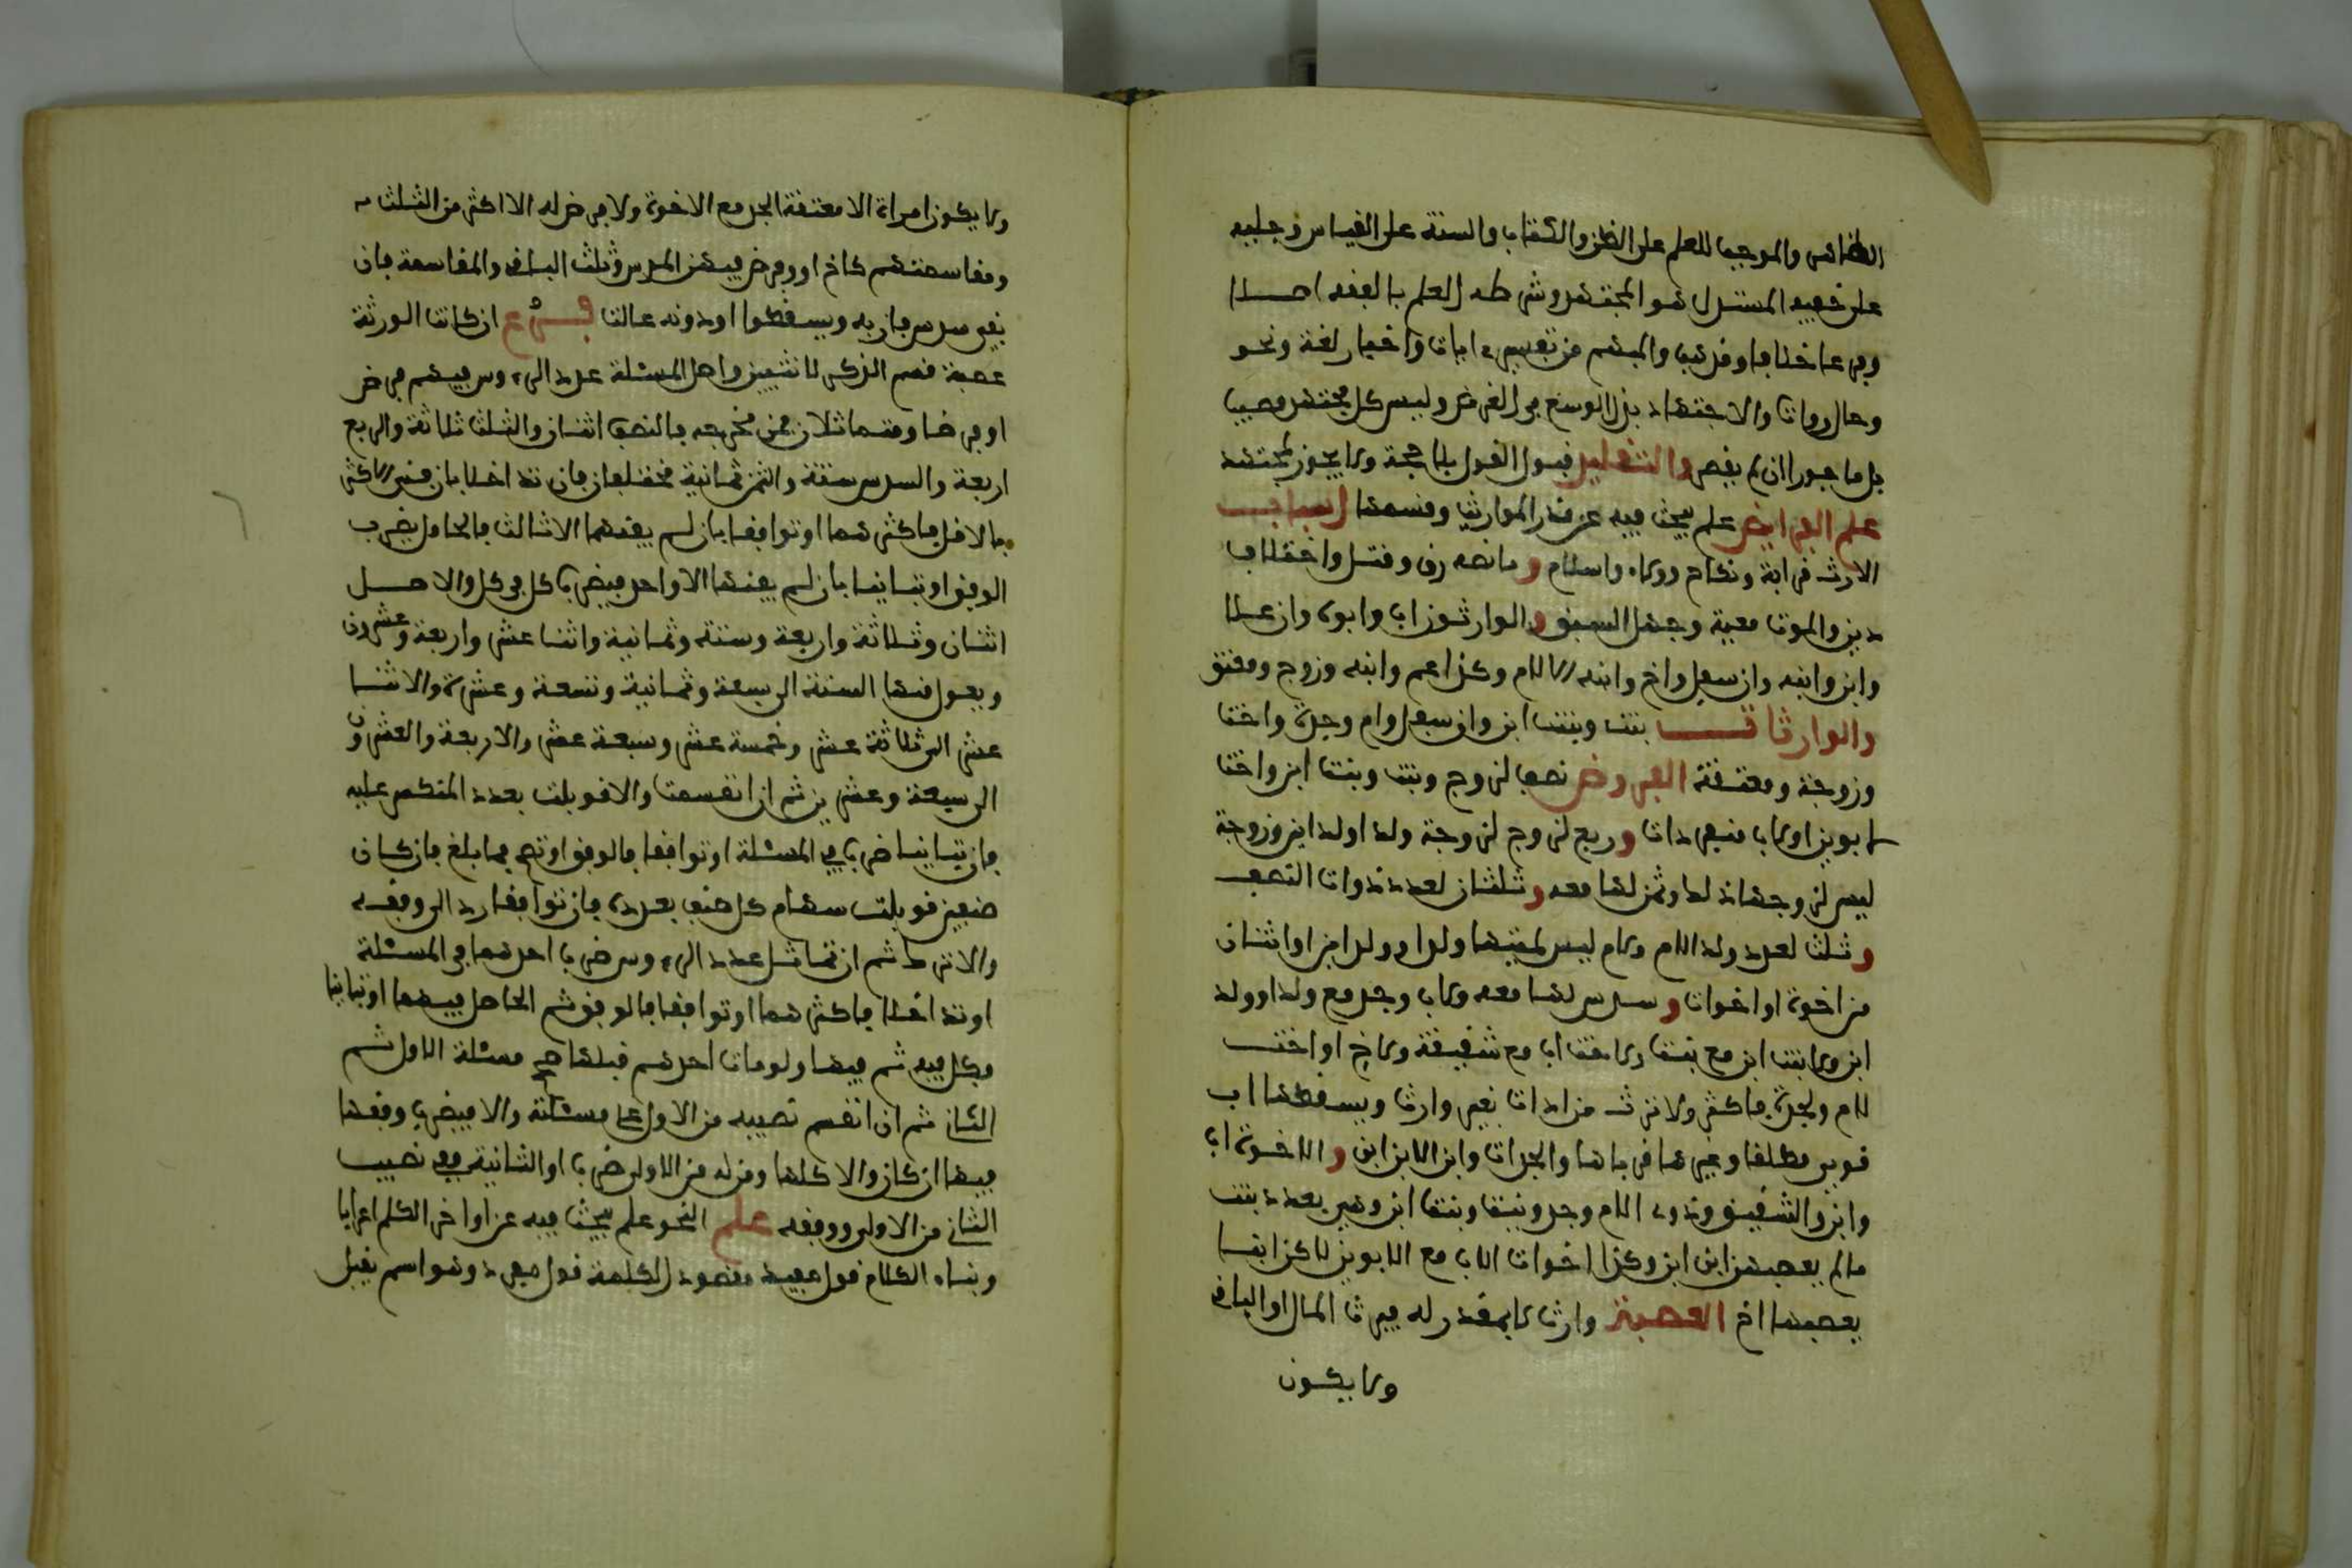 الظاهر والموجب للعلم على الظن والكتاب والسنة على القياس وجليه
على خفيه المستدل هو المجتهد وشرطه العلم بالفقه اصلا
وفرعا خلافا ومذهبا والمهم من تفسير ايات واخبار لغة ونحو
وحال رواة والاجتهاد بذل الوسع في الغرض وليس كل مجتهد مصيبا
بل ماجورا ان لم يقصر والتقليد قبول القول بلا حجة ولا يجوز لمجتهد
علم الفرايض علم يبحث فيه عن قدر المواريث وقسمتها اسباب
الارث قرابة ونكاح وولاء واسلام و مانعه رق وقتل واختلاف
دين والموت معية وجهل السبق و الوارثون اب وابوه وان علا
وابن وابنه وان سفل واخ وابنه الا للام وكذا عم وابنه وزوج ومعتق
والوارثات بنت وبنت ابن وان سفل وام وجدة واخت
وزوجة ومعتقة الفروض نصف لزوج وبنت وبنت ابن واخت
لابوين او لاب منفردات و ربع لزوج لزوجة ولد او ولد ابن وزوجة
ليس لزوجها ذلك وثمن لها معه و ثلثان لعدد ذوات النصف
و ثلث لعدد ولد الام ولام ليس لميتها ولد او ولد ابن او اثنان
من اخوة او اخوات و سدس لها معه ولاب وجد مع ولد او ولد
ابن ولبنت ابن مع بنت ولاخت اب مع شقيقة ولاخ او اخت
لام ولجدة فاكثر ولا ترث من ادلت بغير وارث ويسقطها اب
قوبى مطلقا وغيرها قرباها والجدات وابن الابن ابن و الاخوة اب
وابن والشقيق وذوى الام وجد وبنت وبنت ابن وهن بعدد بنت
مالم يعصبهن ابن ابن وكذا اخوات الاب مع الابوين لاكن انما
يعصبها اخ العصبة وارث لا مقدر له فيرث المال او الباقي
ولا يكون
ولا يكون امراة الا معتقة الجد مع الاخوة ولا فرض له الا اكثر من الثلث
ومقاسمتهم كاخ او وفرض فمن السدس وثلث الباقي والمقاسمة فان
بقي سدس فاز به ويسقطوا او دونه عالت فرع ان كانت الورثة
عصبة قسم الذكر كانثيين واصل المسئلة عدد الروس فيهم فرض
او فرضا ومتماثلان فمن مخرجه فالنصف اثنان والثلث ثلاثة والربع
اربعة والسدس ستة والثمن ثمانية مختلفان فان تداخلا بان فنى الاكثر
بالاقل فاكثرهما او توافقا بان لم يفنهما الا ثالث فالحاصل بضرب
الوفق او تباينا بان لم يفنها الا واحد فيضرب كل في كل والاصل
اثنان وثلاثة واربعة وستة وثمانية واثنا عشر واربعة وعشرون
ويعول منها الستة الى سبعة وثمانية وتسعة وعشرة والاثنا
عشر الى ثلاثة عشر وخمسة عشر وسبعة عشر والاربعة والعشرون
الى سبعة وعشرين ثم ان انقسمت والا قوبلت بعدد المنكسر عليه
فان تباينا ضرب في المسئلة او توافقا فالوفق وتصح مما بلغ فان كان
صنفين قوبلت سهام كل صنف بعدده فان توافقا رد الى وفقه
والا ترك ثم ان تماثل عدد الروس ضرب احدهما في المسئلة
او تداخلا فاكثرهما او توافقا فالوفق ثم الحاصل فيها او تباينا
فكل فيه ثم فيها ولو مات احدهم قبلها صح مسئلة الاول ثم
الثاني ثم ان انقسم نصيبه من الاولى على مسئلته والا فيضرب وفقها
فيها ان كان والا كلها ومن له من الاولى ضرب او الثانية ففي نصيب
الثاني من الاولى ووفقه علم النحو علم يبحث فيه عن اواخر الكلم اعرابا
وبناء الكلام قول مفيد مقصود الكلمة قول مفرد وهو اسم يقبل